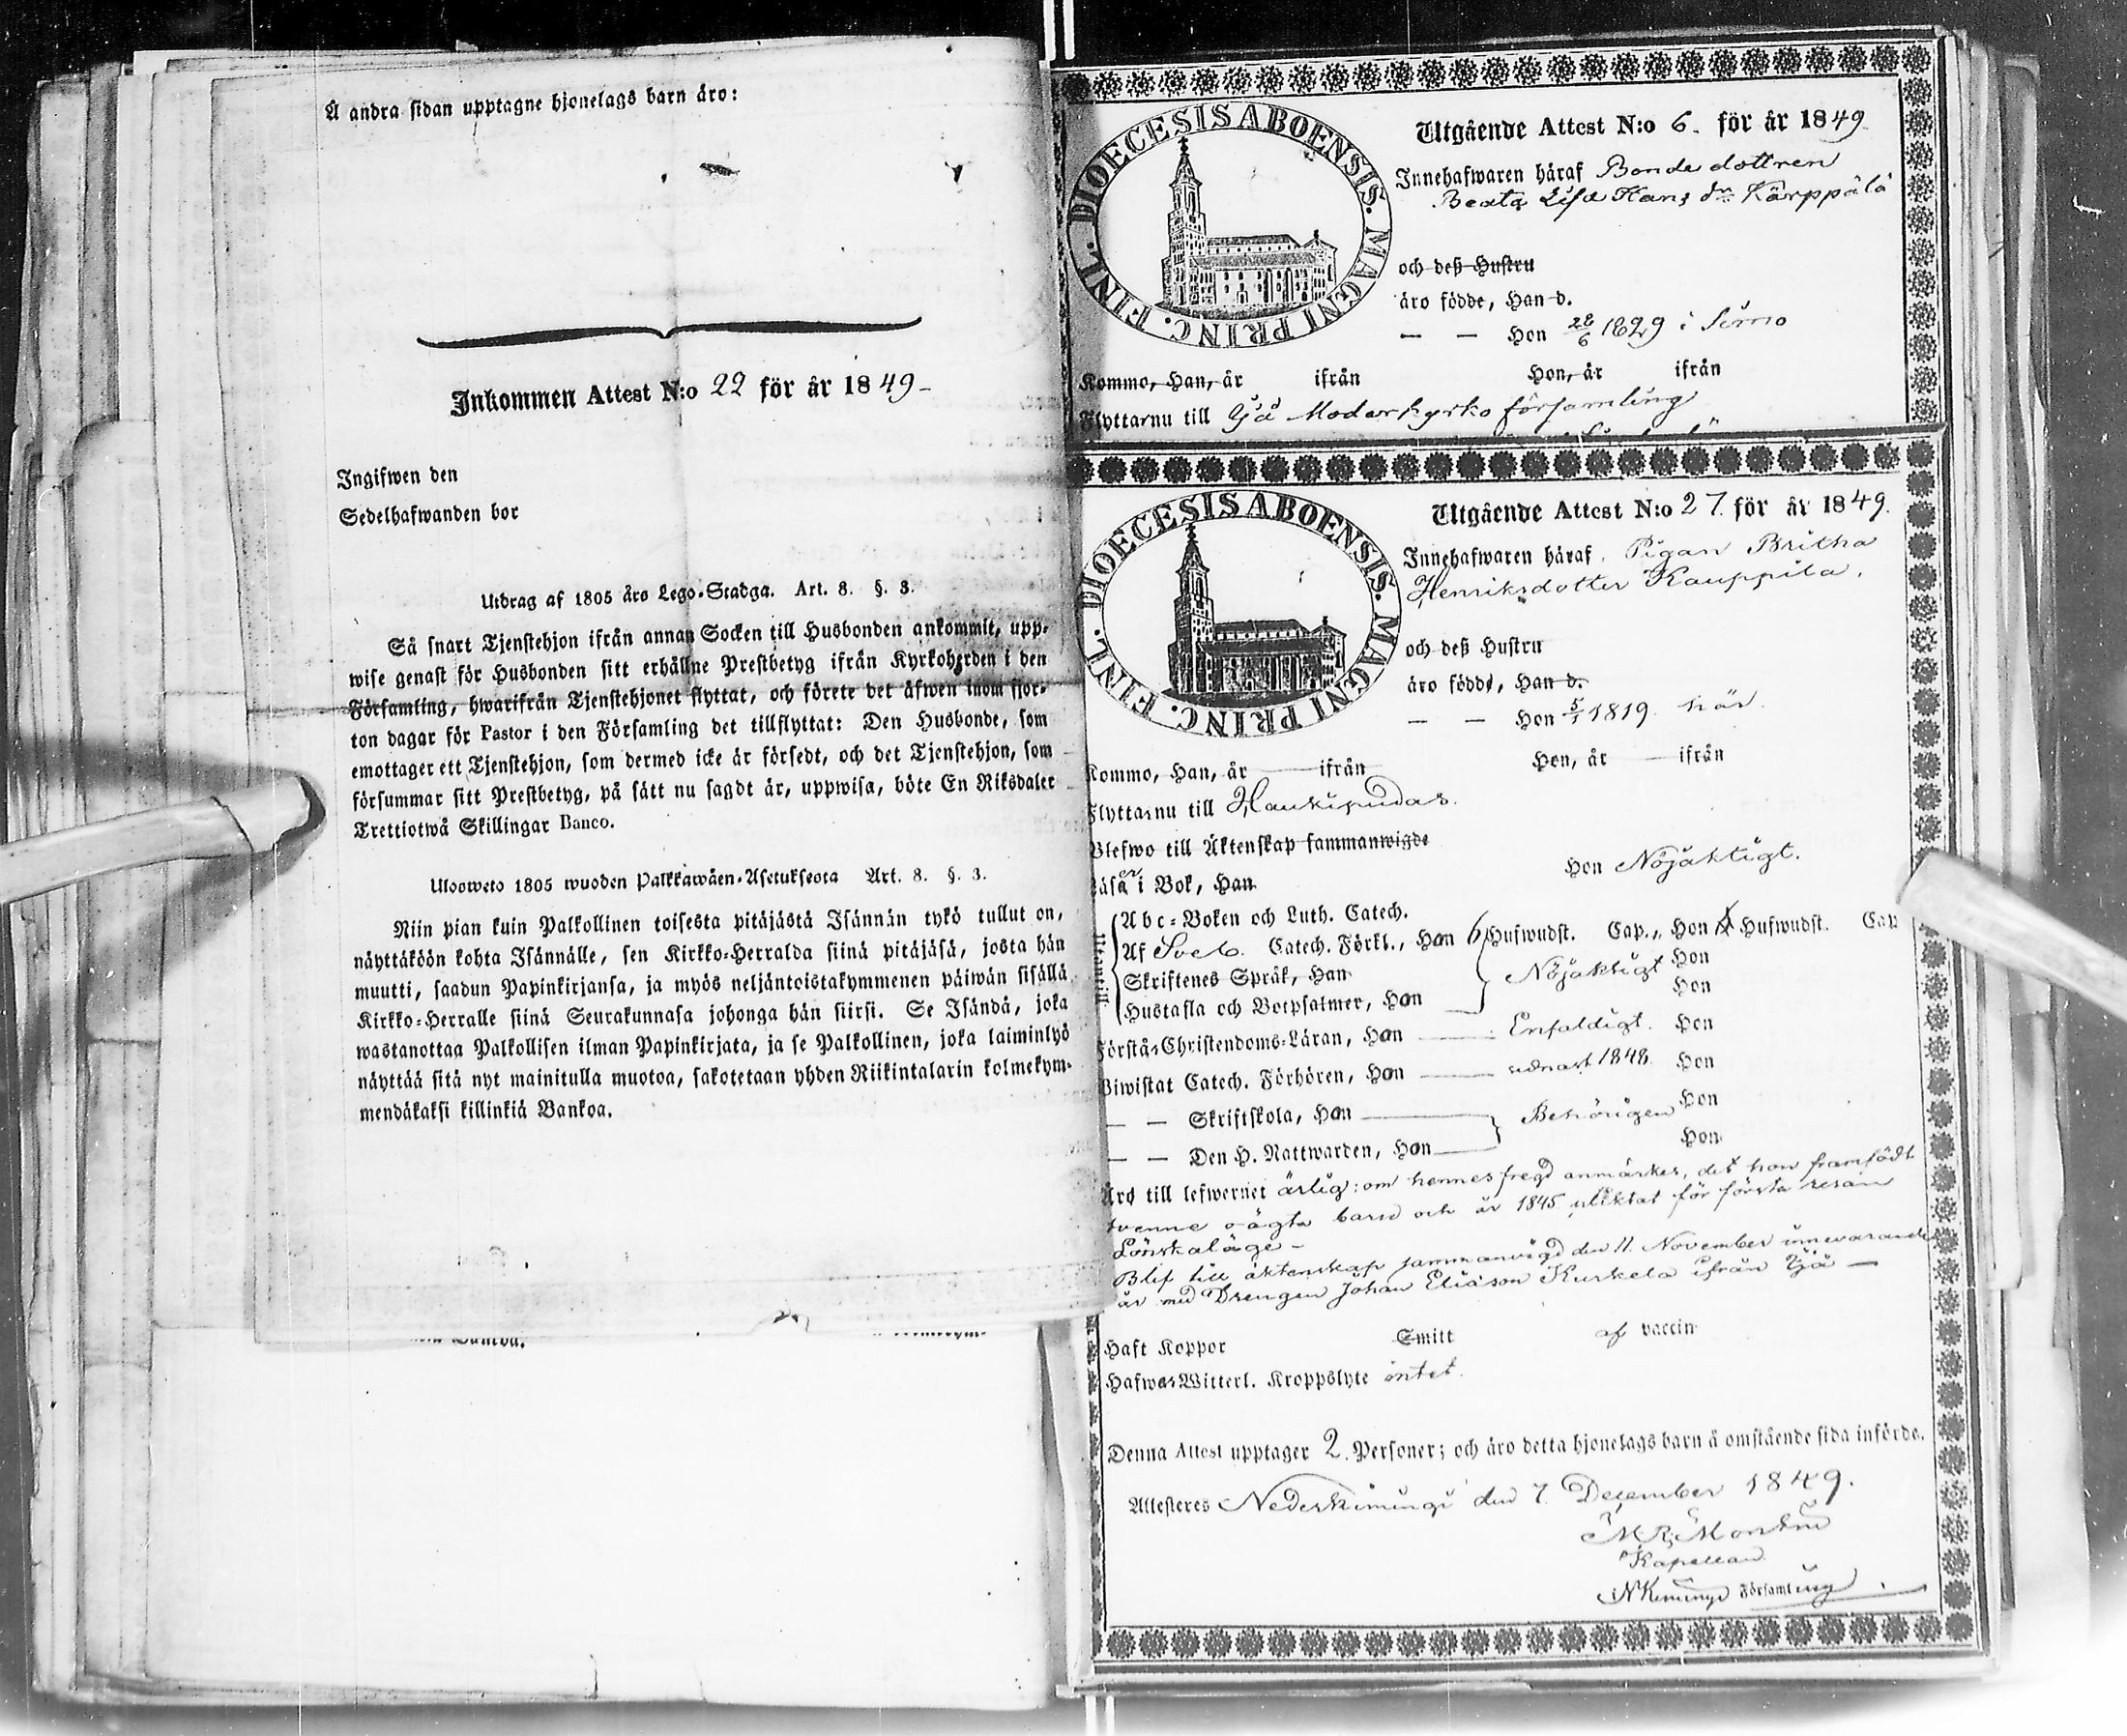 Å andra sidan upptagne hjonelags barn äro:
Inkommen Attest N:o 22 för år 1849
Ingifwen den
Sedelhafwanden bor
Utdrag af 1805 års Lego-Stadga. Art. 8. §. 3.
Så snart Tjenstehjon ifrån annan Socken till Husbonden ankommit, upp-
wise genast för Husbonden sitt erhållne Prestbetyg ifrån Kyrkoherden i den
Församling, hwarifrån Tjenstehjonet flyttat, och förete det äfwen inom fjor-
ton dagar för Pastor i den Församling det tillflyttat: Den Husbonde, som
emottager ett Tjenstehjon, som dermed icke är försedt, och det Tjenstehjon, som
försummar sitt Prestbetyg, på sätt nu sagdt är, uppwisa, böte En Riksdaler
Trettiotwå Skillingar Banco.
Ulosweto 1805 wuoden Palkkawäen-Asetuksesta Art. 8. §. 3.
Niin pian kuin Palkollinen toisesta pitäjästä Isännän tykö tullut on,
näyttäköön kohta Isännälle, sen Kirkko-Herralda siinä pitäjäsä, josta hän
muutti, saadun Papinkirjansa, ja myös neljäntoistakymmenen päiwän sisällä
Kirkko-Herralle siinä Seurakunnasa johonga hän siirsi. Se Isändä, joka
wastanottaa Palkollisen ilman Papinkirjata, ja se Palkollinen, joka laiminlyö
näyttää sitä nyt mainitulla muotoa, sakotetaan yhden Riikintalarin kolmekym-
mendäkaksi killinkiä Bankoa.
DIOECESIS ABOENSIS. MAGNI PRINC. FINL.
Utgående Attest N:o 6. för år 1849.
Innehafwaren häraf Bonde dottren
Beata Lisa Hans dr Kärppälä
och deß Hustru
äro födde, Han d.
— — Hon 28/6 1829 i Simo
Kommo, Han, år ifrån Hon, år ifrån
Flyttar nu till Ijå Moderkyrko församling
DIOECESIS ABOENSIS. MAGNI PRINC. FINL.
Utgående Attest N:o 27. för år 1849.
Innehafwaren häraf Pigan Britha
Henriksdotter Kauppila.
och deß Hustru
äro födde, Han d.
— — Hon 5/1 1819. här.
Kommo, Han, år ifrån Hon, år ifrån
Flyttar nu till Haukipudas.
Blefwo till Äktenskap sammanwigde
Läser i Bok, Han Hon Nöjaktigt.
Utantill
Abc-Boken och Luth. Catech.
Af Sveb. Catech. Förkl., Hon 6 Hufwudst. Cap., Hon Hufwudst. Cap
Skriftenes Språk, Han Nöjaktigt Hon
Hustafla och Botpsalmer, Hon Hon
Förstår Christendoms-Läran, Hon Enfaldigt. Hon
Biwistat Catech. Förhören, Hon senast 1848. Hon
— — Skriftskola, Hon Behörigen Hon
— — Den H. Nattwarden, Hon Hon
Äro till lefwernet ärlig: om hennes fregd anmärkes, det hon framfödt
tvenne oägta barn och år 1845 pliktat för första resan
Lönskaläge –
Blef till äktenskap sammanvigd den 11. November innevarande
år med Drengen Johan Eliasson Kurkela ifrån Ijå —
Haft Koppor Smitt af vaccin
Hafwa Witterl. Kroppslyte intet.
Denna Attest upptager 2. Personer; och äro detta hjonelags barn å omstående sida införde.
Attesteres Nederkimingi den 7. December 1849.
Kapellan
i NKimingi Församling